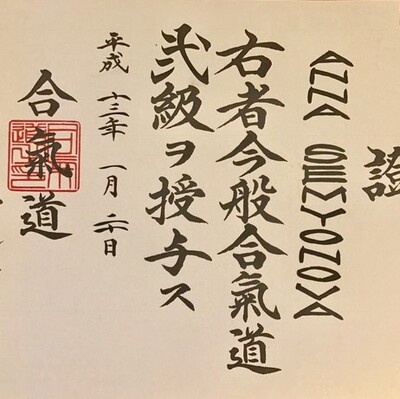 證
ANNA SEMYONOVA
右者今般合氣道
弐級ヲ授与ス
平成 十三年 一月 二十日
合氣道